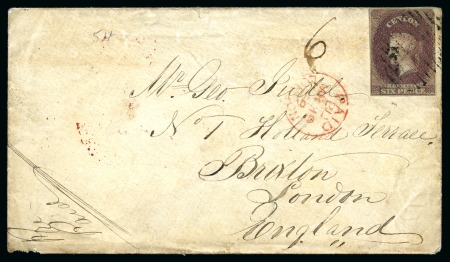 6
CEYLON
POSTAGE
SIX PENCE
PAID
Mr. Geo. Judd
No 1 Holland Terrace
Brixton
London
England